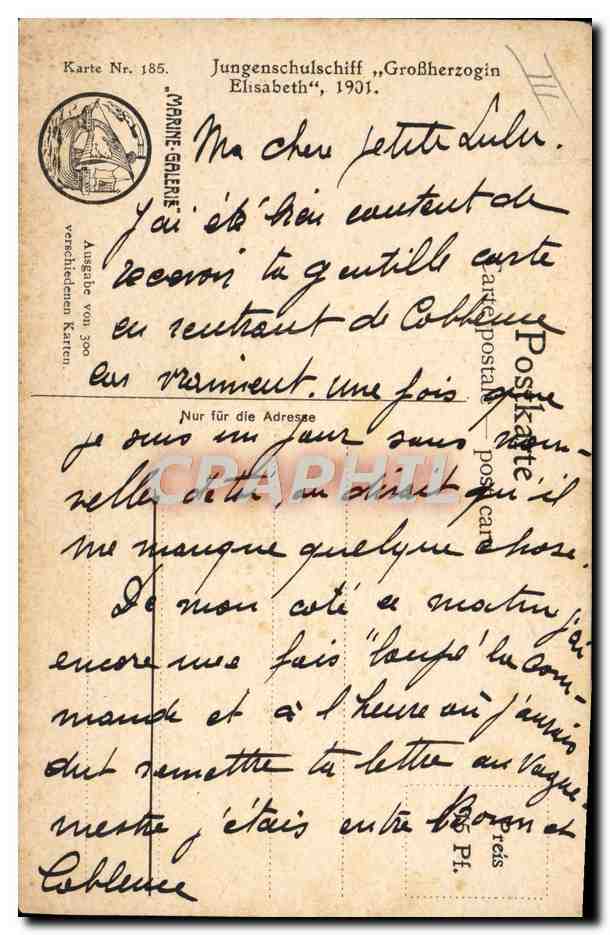 Karte Nr. 185.
Jungenschulschiff „Großherzogin
Elisabeth“, 1901.
III
„MARINE-GALERIE“
Ausgabe von 300
verschiedenen Karten.
Ma chere petite Lulu.
J'ai été bien content de
recevoir ta gentille carte
en rentrant de Coblence
car vraiment. une fois que
Nur für die Adresse
je suis un jour sans nou-
velles de toi, on dirait qu'il
me manque quelque chose.
De mon coté ce matin j'ai
encore une fois "loupé" la com-
mande et à l'heure où j'aurais
dut remettre ta lettre au Vague-
mestre j'étais entre Bonn et
Coblence
Postkarte
Carte postale — post card
Preis
15 Pf.
CRAPHIL